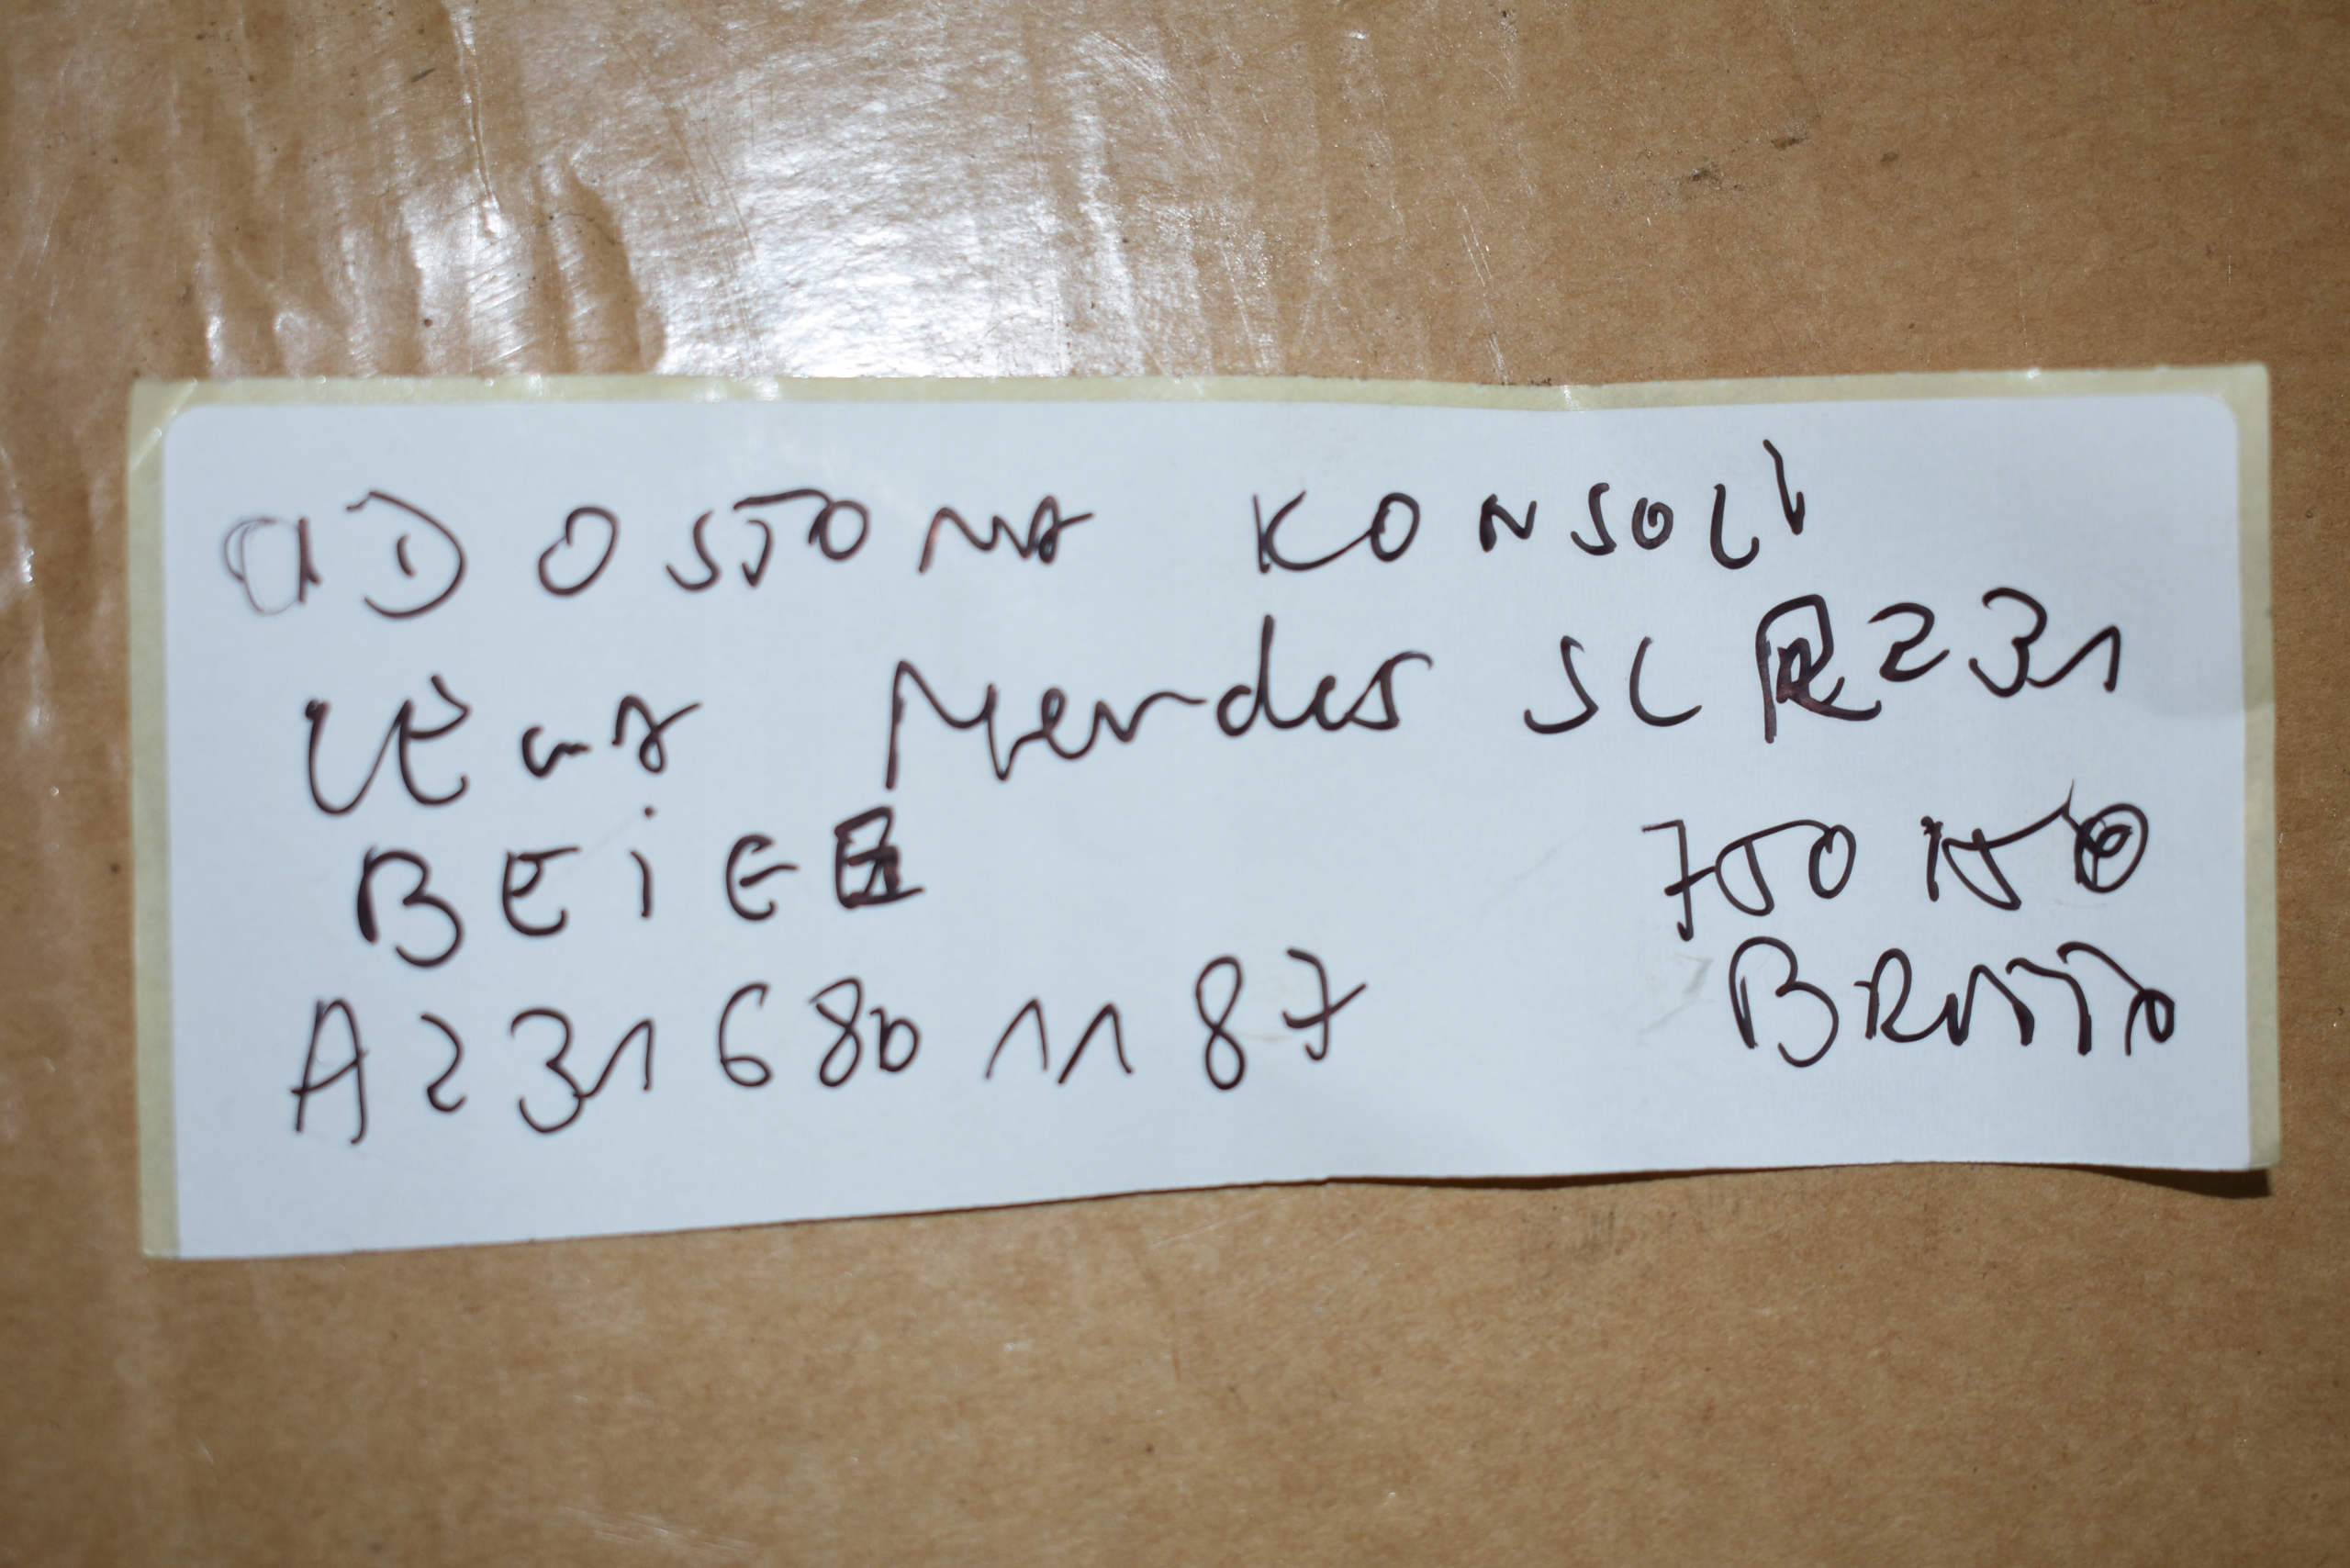 OSŁONA KONSOLI
LEWA Mercedes SL R231
BEIGE
750
A231 680 11 87 BRUTTO